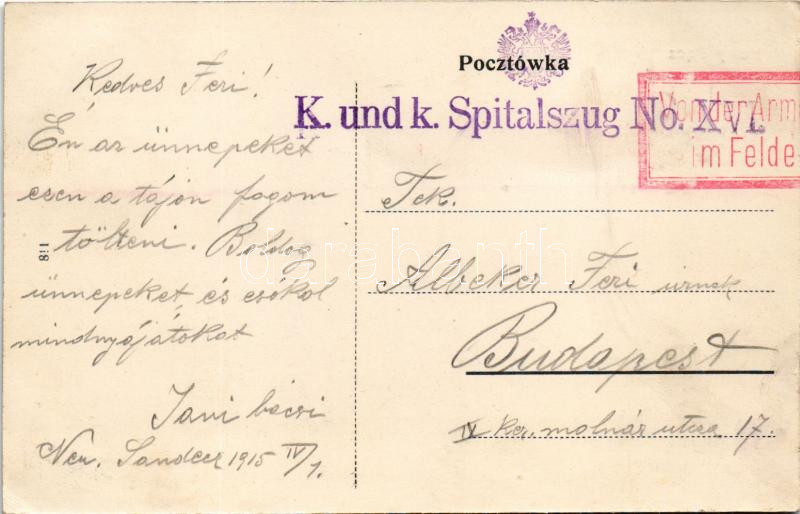 Pocztówka
K. und k. Spitalszug No. XVI.
Von der Arm
im Felde
Kedves Feri!
Én az ünnepeket
ezen a tájon fogom
tölteni. Boldog
ünnepeket és csókol
mindnyájátokat
Jani bácsi
Neu. Sandecz 1915 IV/1.
Tek.
Albeker Feri úrnak
Budapest
IV ker. molnár utcza 17.
1!8
darabanth